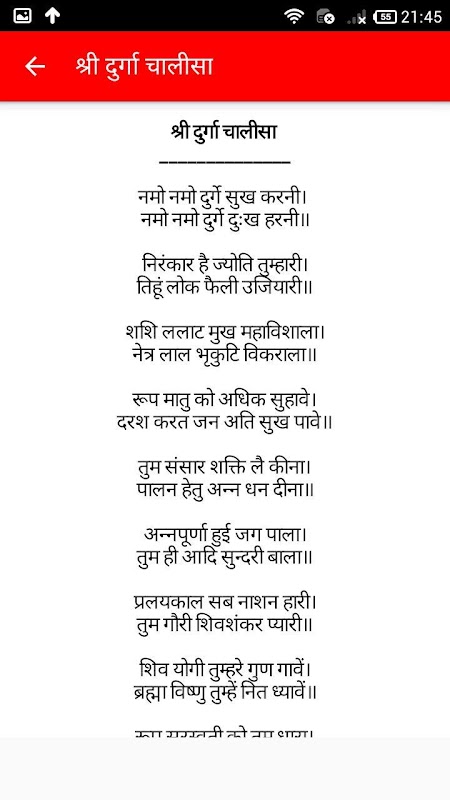 55 21:45
श्री दुर्गा चालीसा
श्री दुर्गा चालीसा
_______________
नमो नमो दुर्गे सुख करनी।
नमो नमो दुर्गे दुःख हरनी॥
निरंकार है ज्योति तुम्हारी।
तिहूं लोक फैली उजियारी॥
शशि ललाट मुख महाविशाला।
नेत्र लाल भृकुटि विकराला॥
रूप मातु को अधिक सुहावे।
दरश करत जन अति सुख पावे॥
तुम संसार शक्ति लै कीना।
पालन हेतु अन्न धन दीना॥
अन्नपूर्णा हुई जग पाला।
तुम ही आदि सुन्दरी बाला॥
प्रलयकाल सब नाशन हारी।
तुम गौरी शिवशंकर प्यारी॥
शिव योगी तुम्हरे गुण गावें।
ब्रह्मा विष्णु तुम्हें नित ध्यावें॥